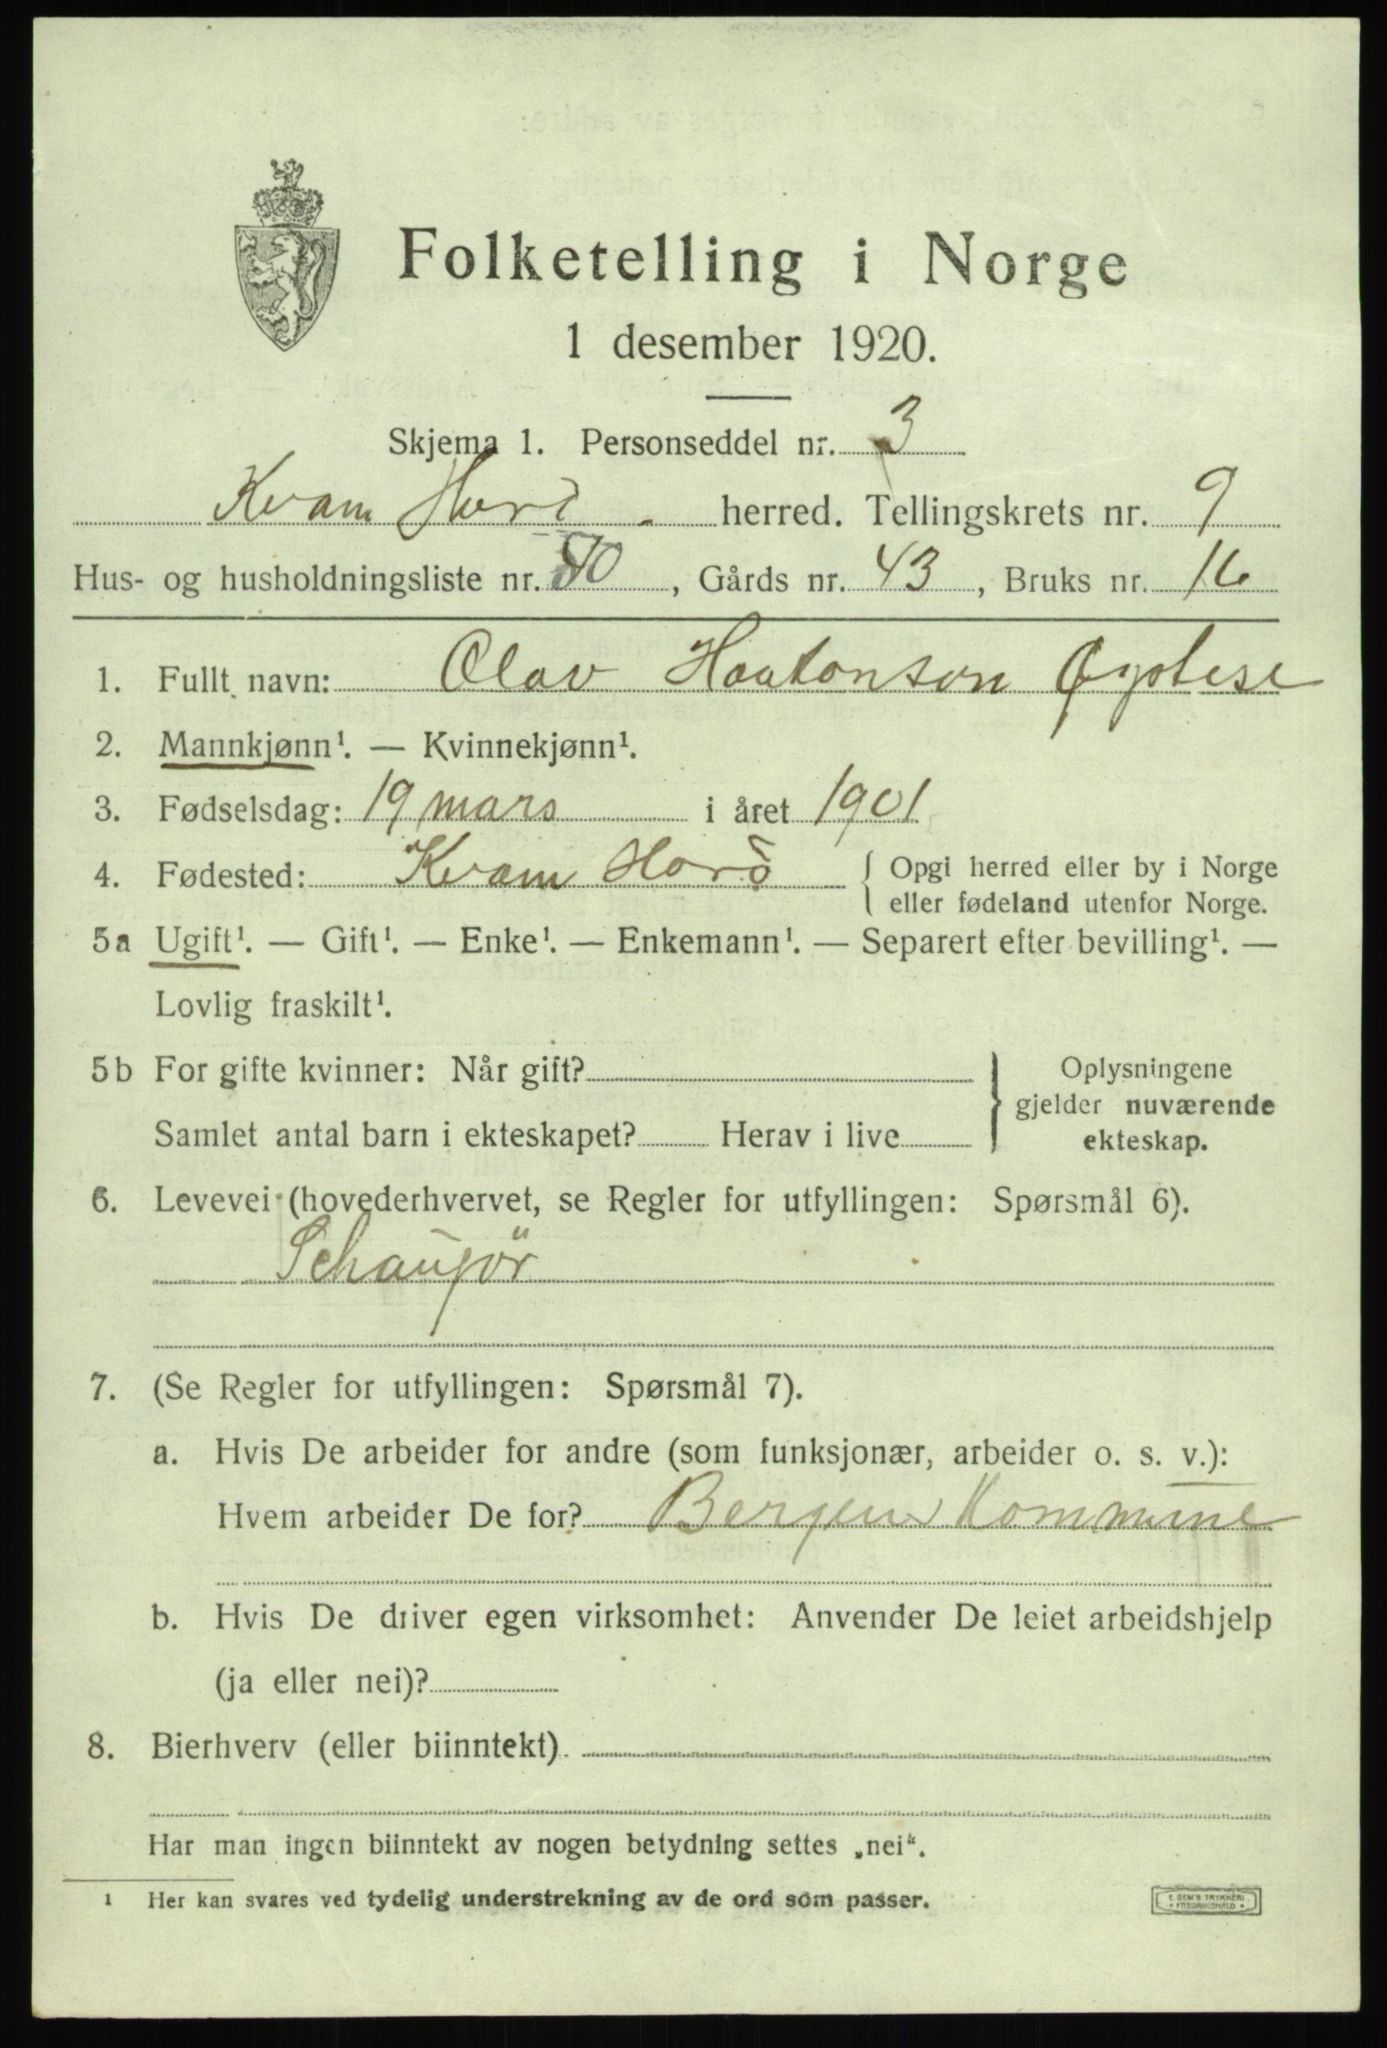 Folketelling i Norge
1 desember 1920.
Skjema 1. Personseddel nr. 3
Kvam Hord. herred. Tellingskrets nr. 9
Hus- og husholdningsliste nr. , Gårds nr. 43, Bruks nr. 16
1. Fullt navn: Olav Haakonson Øystese
2. Mannkjønn¹. — Kvinnekjønn¹.
3. Fødselsdag: 19 mars i året 1901
4. Fødested: Kvam Hord { Opgi herred eller by i Norge
eller fødeland utenfor Norge.
5a Ugift¹. — Gift¹. — Enke¹. — Enkemann¹. — Separert efter bevilling¹. —
Lovlig fraskilt¹.
5b For gifte kvinner: Når gift? } Oplysningene
gjelder nuværende
Samlet antal barn i ekteskapet? Herav i live
ekteskap.
6. Levevei (hovederhvervet, se Regler for utfyllingen: Spørsmål 6).
Schauför
7. (Se Regler for utfyllingen: Spørsmål 7).
a. Hvis De arbeider for andre (som funksjonær, arbeider o. s. v.):
Hvem arbeider De for? Bergens Kommune
b. Hvis De driver egen virksomhet: Anvender De leiet arbeidshjelp
(ja eller nei)?
8. Bierhverv (eller biinntekt)
Har man ingen biinntekt av nogen betydning settes „nei“.
1 Her kan svares ved tydelig understrekning av de ord som passer.
E SEM'S TRYKKERI
FREDRIKSHALD